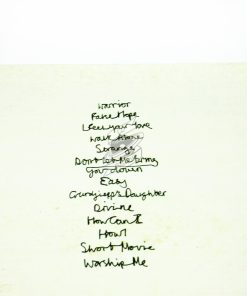 Warrior
False Hope
I Feel your love
Walk Alone
Strange
Don't Let Me Bring
you down
Easy
Gurdjieff's Daughter
Divine
How Can I
Howl
Short Movie
Worship Me